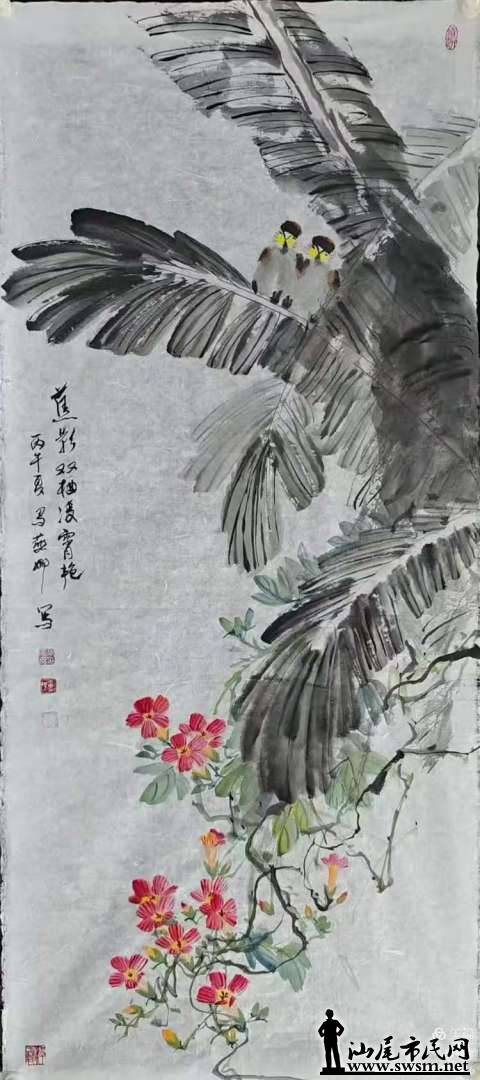 蕉影双栖凌霄艳
丙午夏马燕卿写
汕尾市民网
www.swsm.net